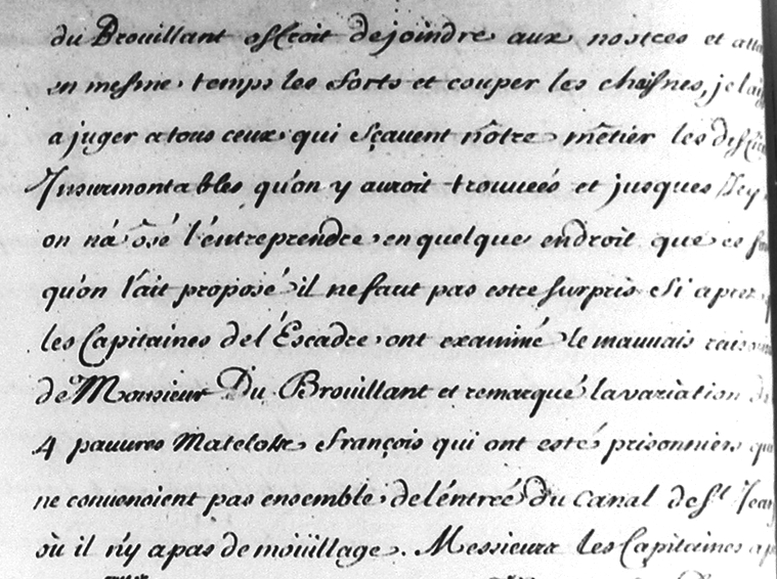 du Brouillant offroit de joindre aux nostres et
en mesme temps les forts et couper les chaisnes, je
a juger a tous ceux qui sçavent nôtre mêtier les
Insurmontables qu'on y auroit trouveés et jusques Icy
on n'a ôsé l'éntreprendre en quelque endroit que ce
qu'on l'ait proposé il ne faut pas estre surpris Si aprez
les Capitaines de l'Escadre ont examiné le mauvais
de Monsieur Du Brouillant et remarqué la variation
4 pauvres Matelots françois qui ont esté prisonniers
ne convenoient pas ensemble de l'éntreé du Canal de St Jean
où il n'y a pas de moüillage. Messieurs les Capitaines